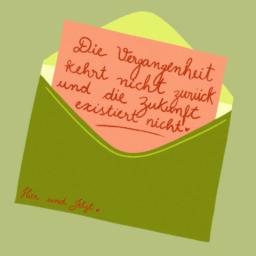 Die Vergangenheit
kehrt nicht zurück
und die Zukunft
existiert nicht.
Hier und Jetzt.